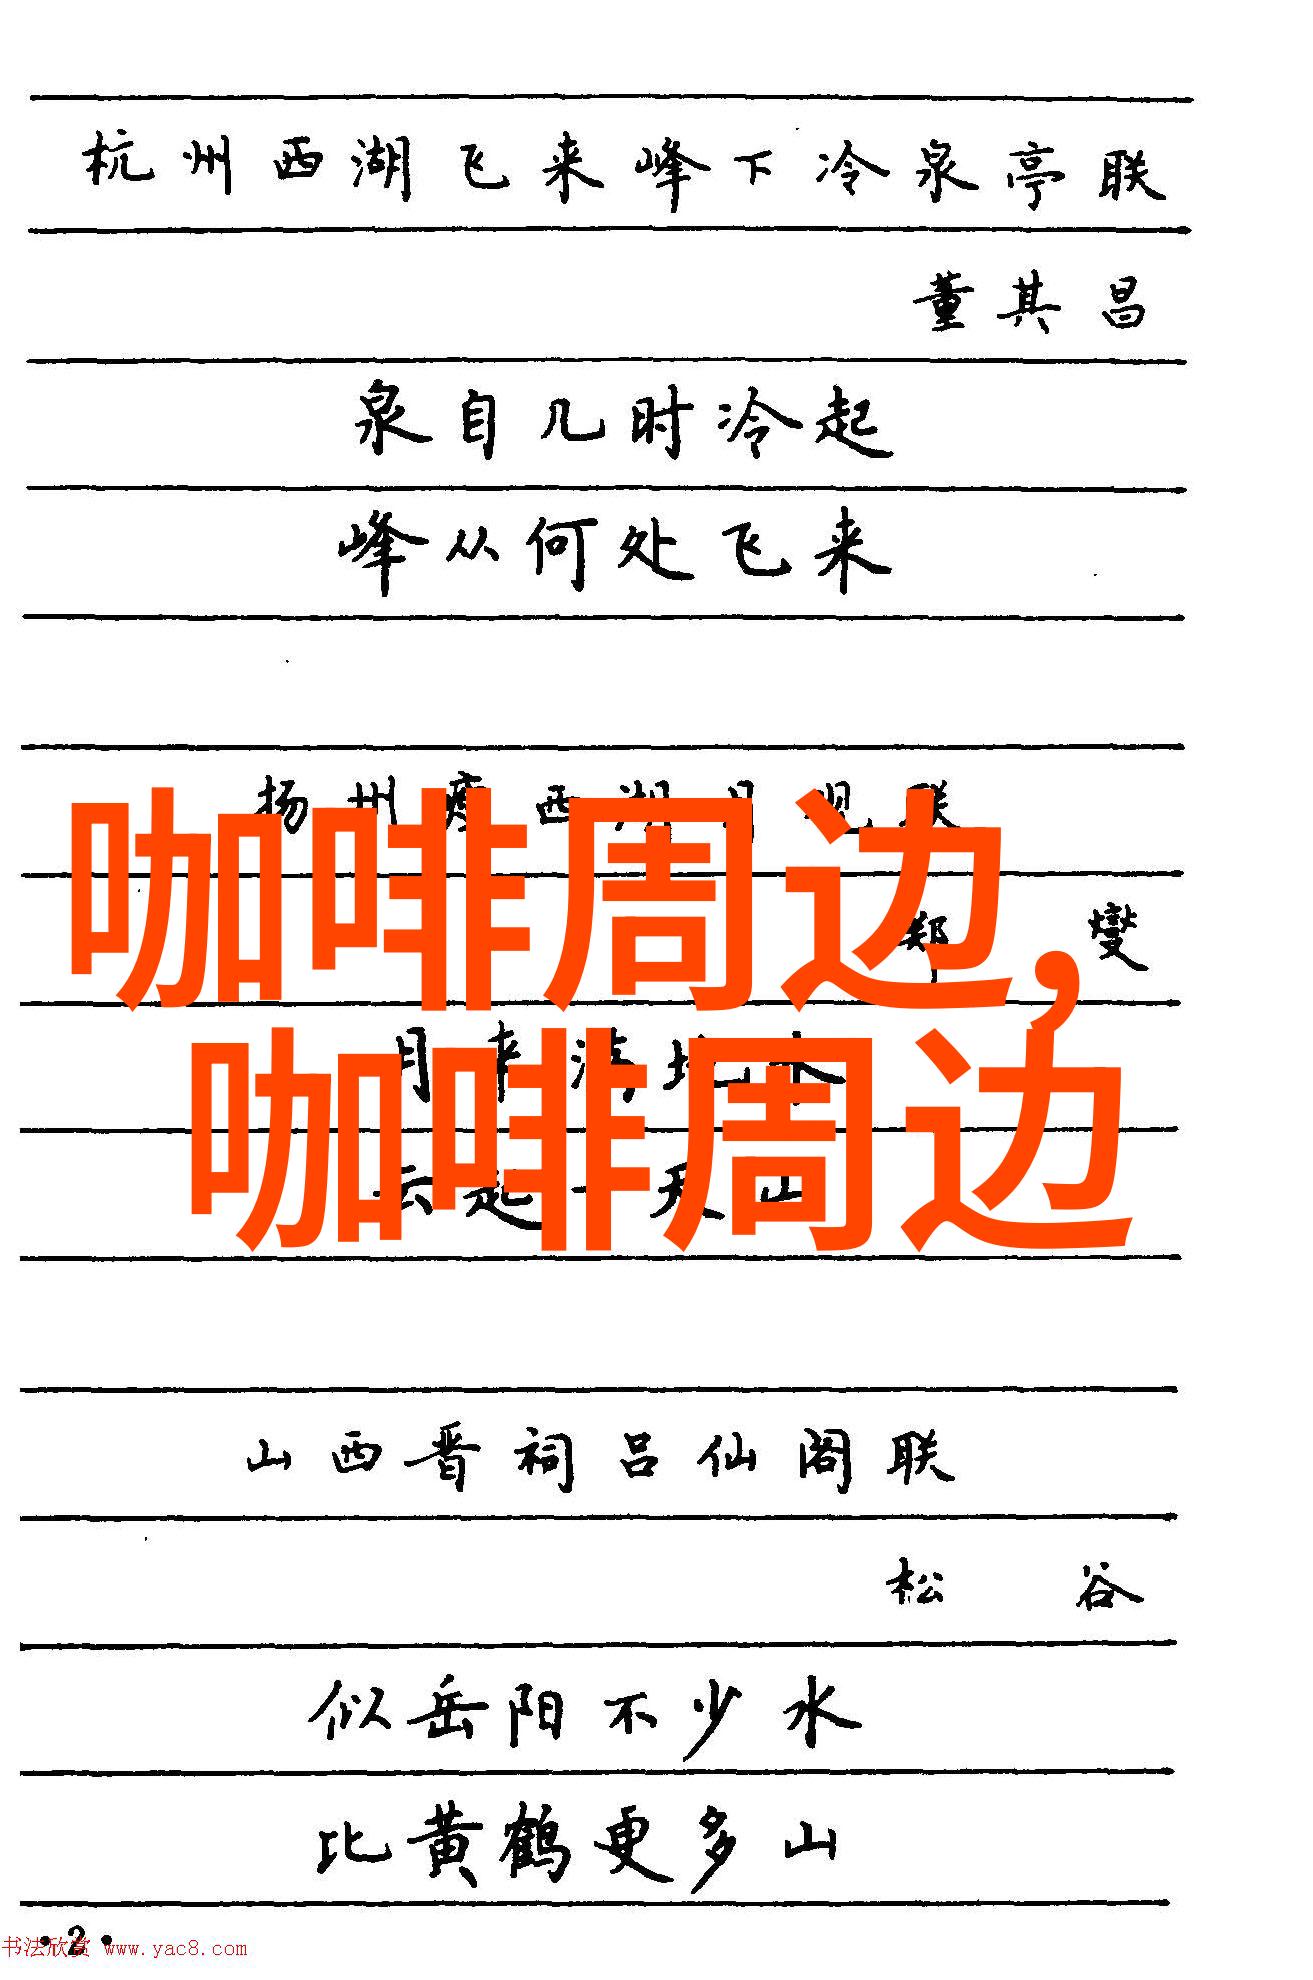 杭州西湖飞来峰下冷泉亭联
董其昌
泉自几时冷起
峰从何处飞来
扬州瘦西湖月观联
郑燮
月来满地水
云起一天山
咖啡周边,
咖啡周边
山西晋祠吕仙阁联
松谷
似岳阳不少水
比黄鹤更多山
·2·
书法欣赏 www.yac8.com